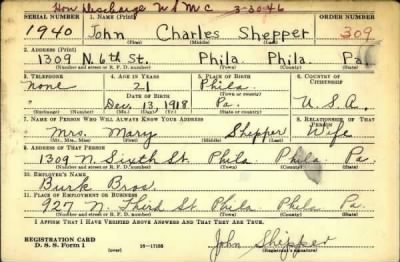 Hon Discharge U S M C 3-30-46
SERIAL NUMBER 1. NAME (Print) ORDER NUMBER
1940 John Charles Shepper 309
(First) (Middle) (Last)
2. ADDRESS (Print)
1309 N. 6th St. Phila. Phila. Pa.
(Number and street or R. F. D. number) (Town) (County) (State)
3. TELEPHONE 4. AGE IN YEARS 5. PLACE OF BIRTH 6. COUNTRY OF CITIZENSHIP
none 21 Phila.
DATE OF BIRTH (Town or county)
Dec. 13, 1918 Pa. U.S.A.
(Exchange) (Number) (Mo.) (Day) (Yr.) (State or country)
7. NAME OF PERSON WHO WILL ALWAYS KNOW YOUR ADDRESS 8. RELATIONSHIP OF THAT PERSON
Mrs. Mary Shepper Wife
(Mr., Mrs., Miss) (First) (Middle) (Last)
9. ADDRESS OF THAT PERSON
1309 N. Sixth St. Phila. Phila. Pa.
(Number and street or R. F. D. number) (Town) (County) (State)
10. EMPLOYER'S NAME
Burk Bros.
11. PLACE OF EMPLOYMENT OR BUSINESS
927 N. Third St. Phila Phila Pa.
(Number and street or R. F. D. number) (Town) (County) (State)
I AFFIRM THAT I HAVE VERIFIED ABOVE ANSWERS AND THAT THEY ARE TRUE.
REGISTRATION CARD
D. S. S. Form 1 (over) 16—17105 John Shepper
(Registrant's signature)